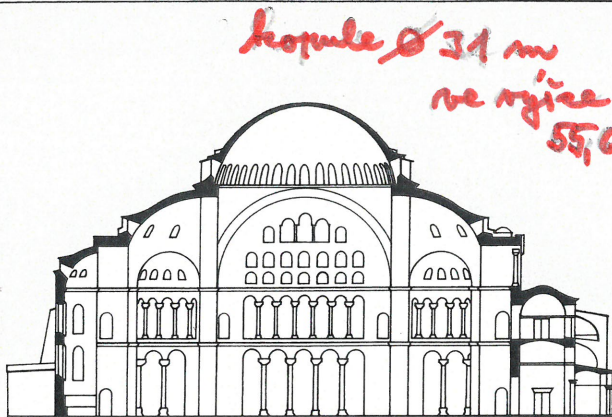 kopule Ø 31 m
ve výšce
55,6